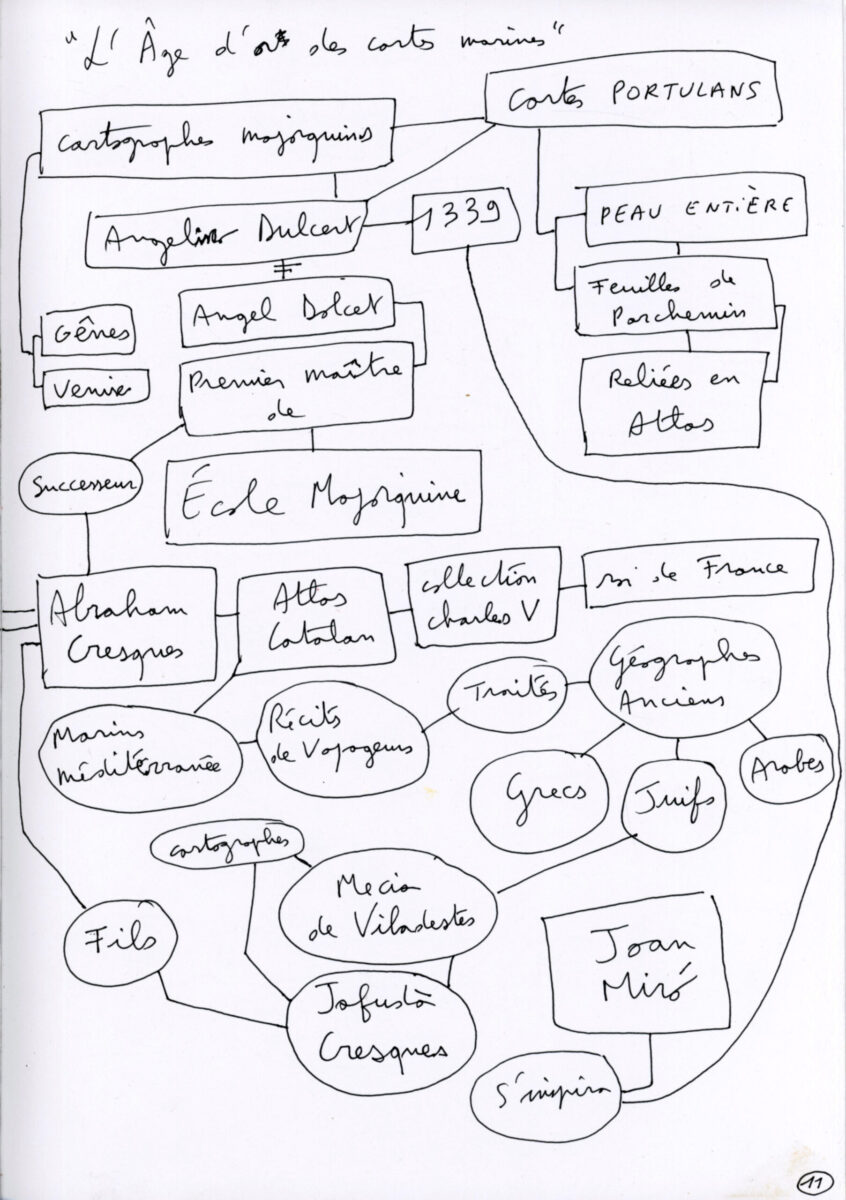 "L'Âge d'or des cartes marines"
Cartes PORTULANS
Cartographes majorquins
Angelino Dulcert
1339
PEAU ENTIÈRE
Angel Dolcet
Feuilles de
Parchemin
Gênes
Venise
Premier maître
de
Reliées en
Atlas
Successeur
École Majorquine
Abraham
Cresques
Atlas
Catalan
collection
charles V
roi de France
Marins
méditérranée
Récits
de Voyageurs
Traités
Géographes
Anciens
Grecs
Juifs
Arabes
cartographes
Mecia
de Viladestes
Fils
Jafustà
Cresques
Joan
Miró
S'inspira
11